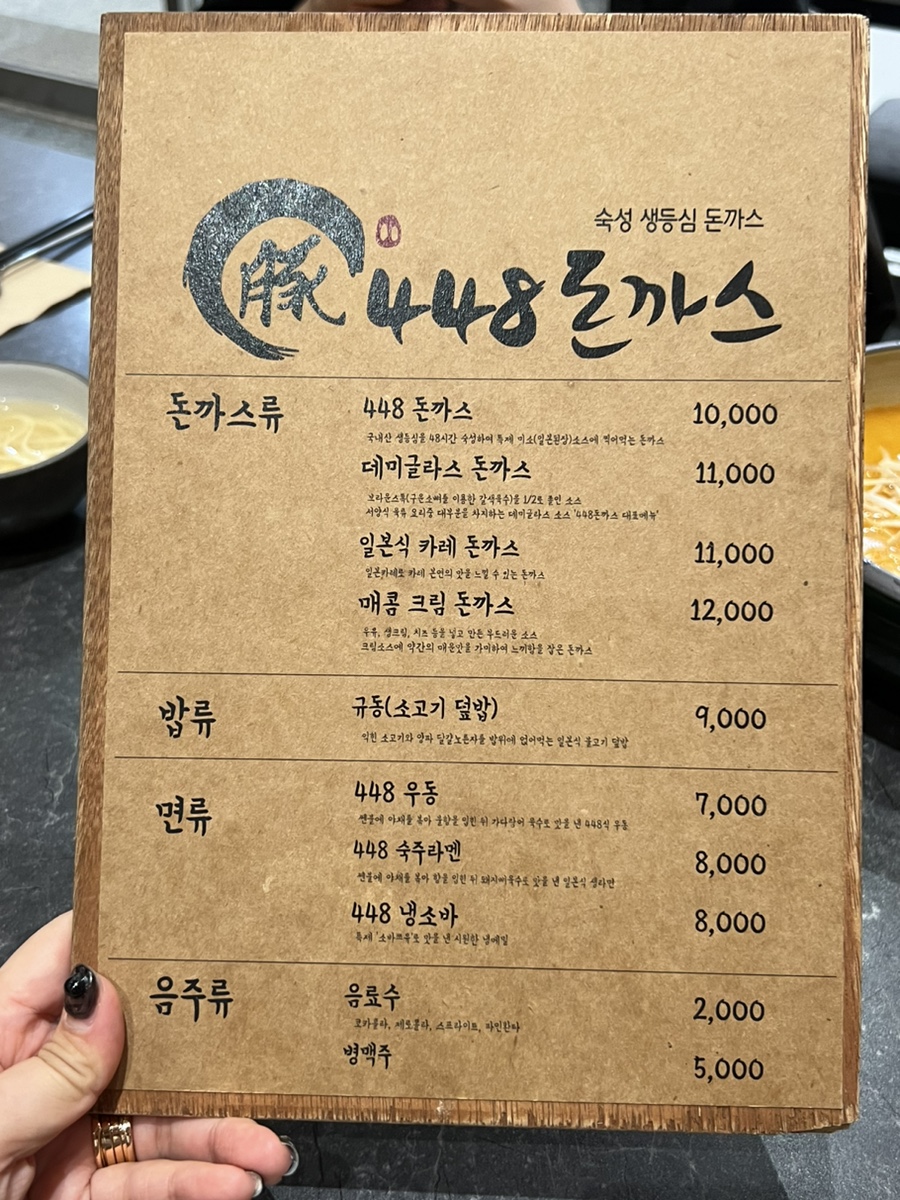 숙성 생등심 돈까스
豚 448 돈까스
돈까스류
448 돈까스 10,000
국내산 생등심을 48시간 숙성하여 특제 미소(일본된장)소스에 찍어먹는 돈까스
데미글라스 돈까스 11,000
브라운스톡(구운소뼈를 이용한 갈색육수)을 1/2로 졸인 소스
서양식 육류 요리중 대부분을 차지하는 데미글라스 소스 '448돈까스 대표메뉴'
일본식 카레 돈까스 11,000
일본카레로 카레 본연의 맛을 느낄 수 있는 돈까스
매콤 크림 돈까스 12,000
우유, 생크림, 치즈 등을 넣고 만든 부드러운 소스
크림소스에 약간의 매운맛을 가미하여 느끼함을 잡은 돈까스
밥류
규동(소고기 덮밥) 9,000
익힌 소고기와 양파 달걀노른자를 밥위에 얹어먹는 일본식 불고기 덮밥
면류
448 우동 7,000
센불에 야채를 볶아 불향을 입힌 뒤 가다랑어 육수로 맛을 낸 448식 우동
448 숙주라멘 8,000
센불에 야채를 볶아 향을 입힌 뒤 돼지뼈육수로 맛을 낸 일본식 생라면
448 냉소바 8,000
특제 '소바쯔유'로 맛을 낸 시원한 냉메밀
음주류
음료수 2,000
코카콜라, 제로콜라, 스프라이트, 파인환타
병맥주 5,000